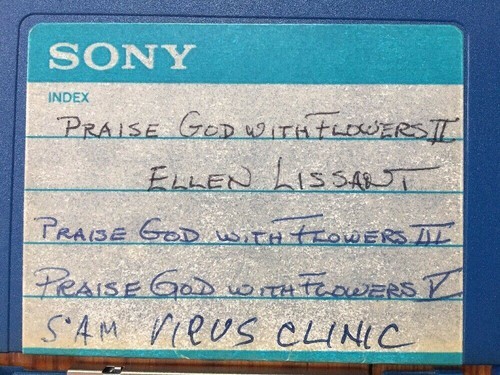 SONY
INDEX
PRAISE GOD WITH FLOWERS II
ELLEN LISSANT
PRAISE GOD WITH FLOWERS III
PRAISE GOD WITH FLOWERS V
S'AM VIRUS CLINIC